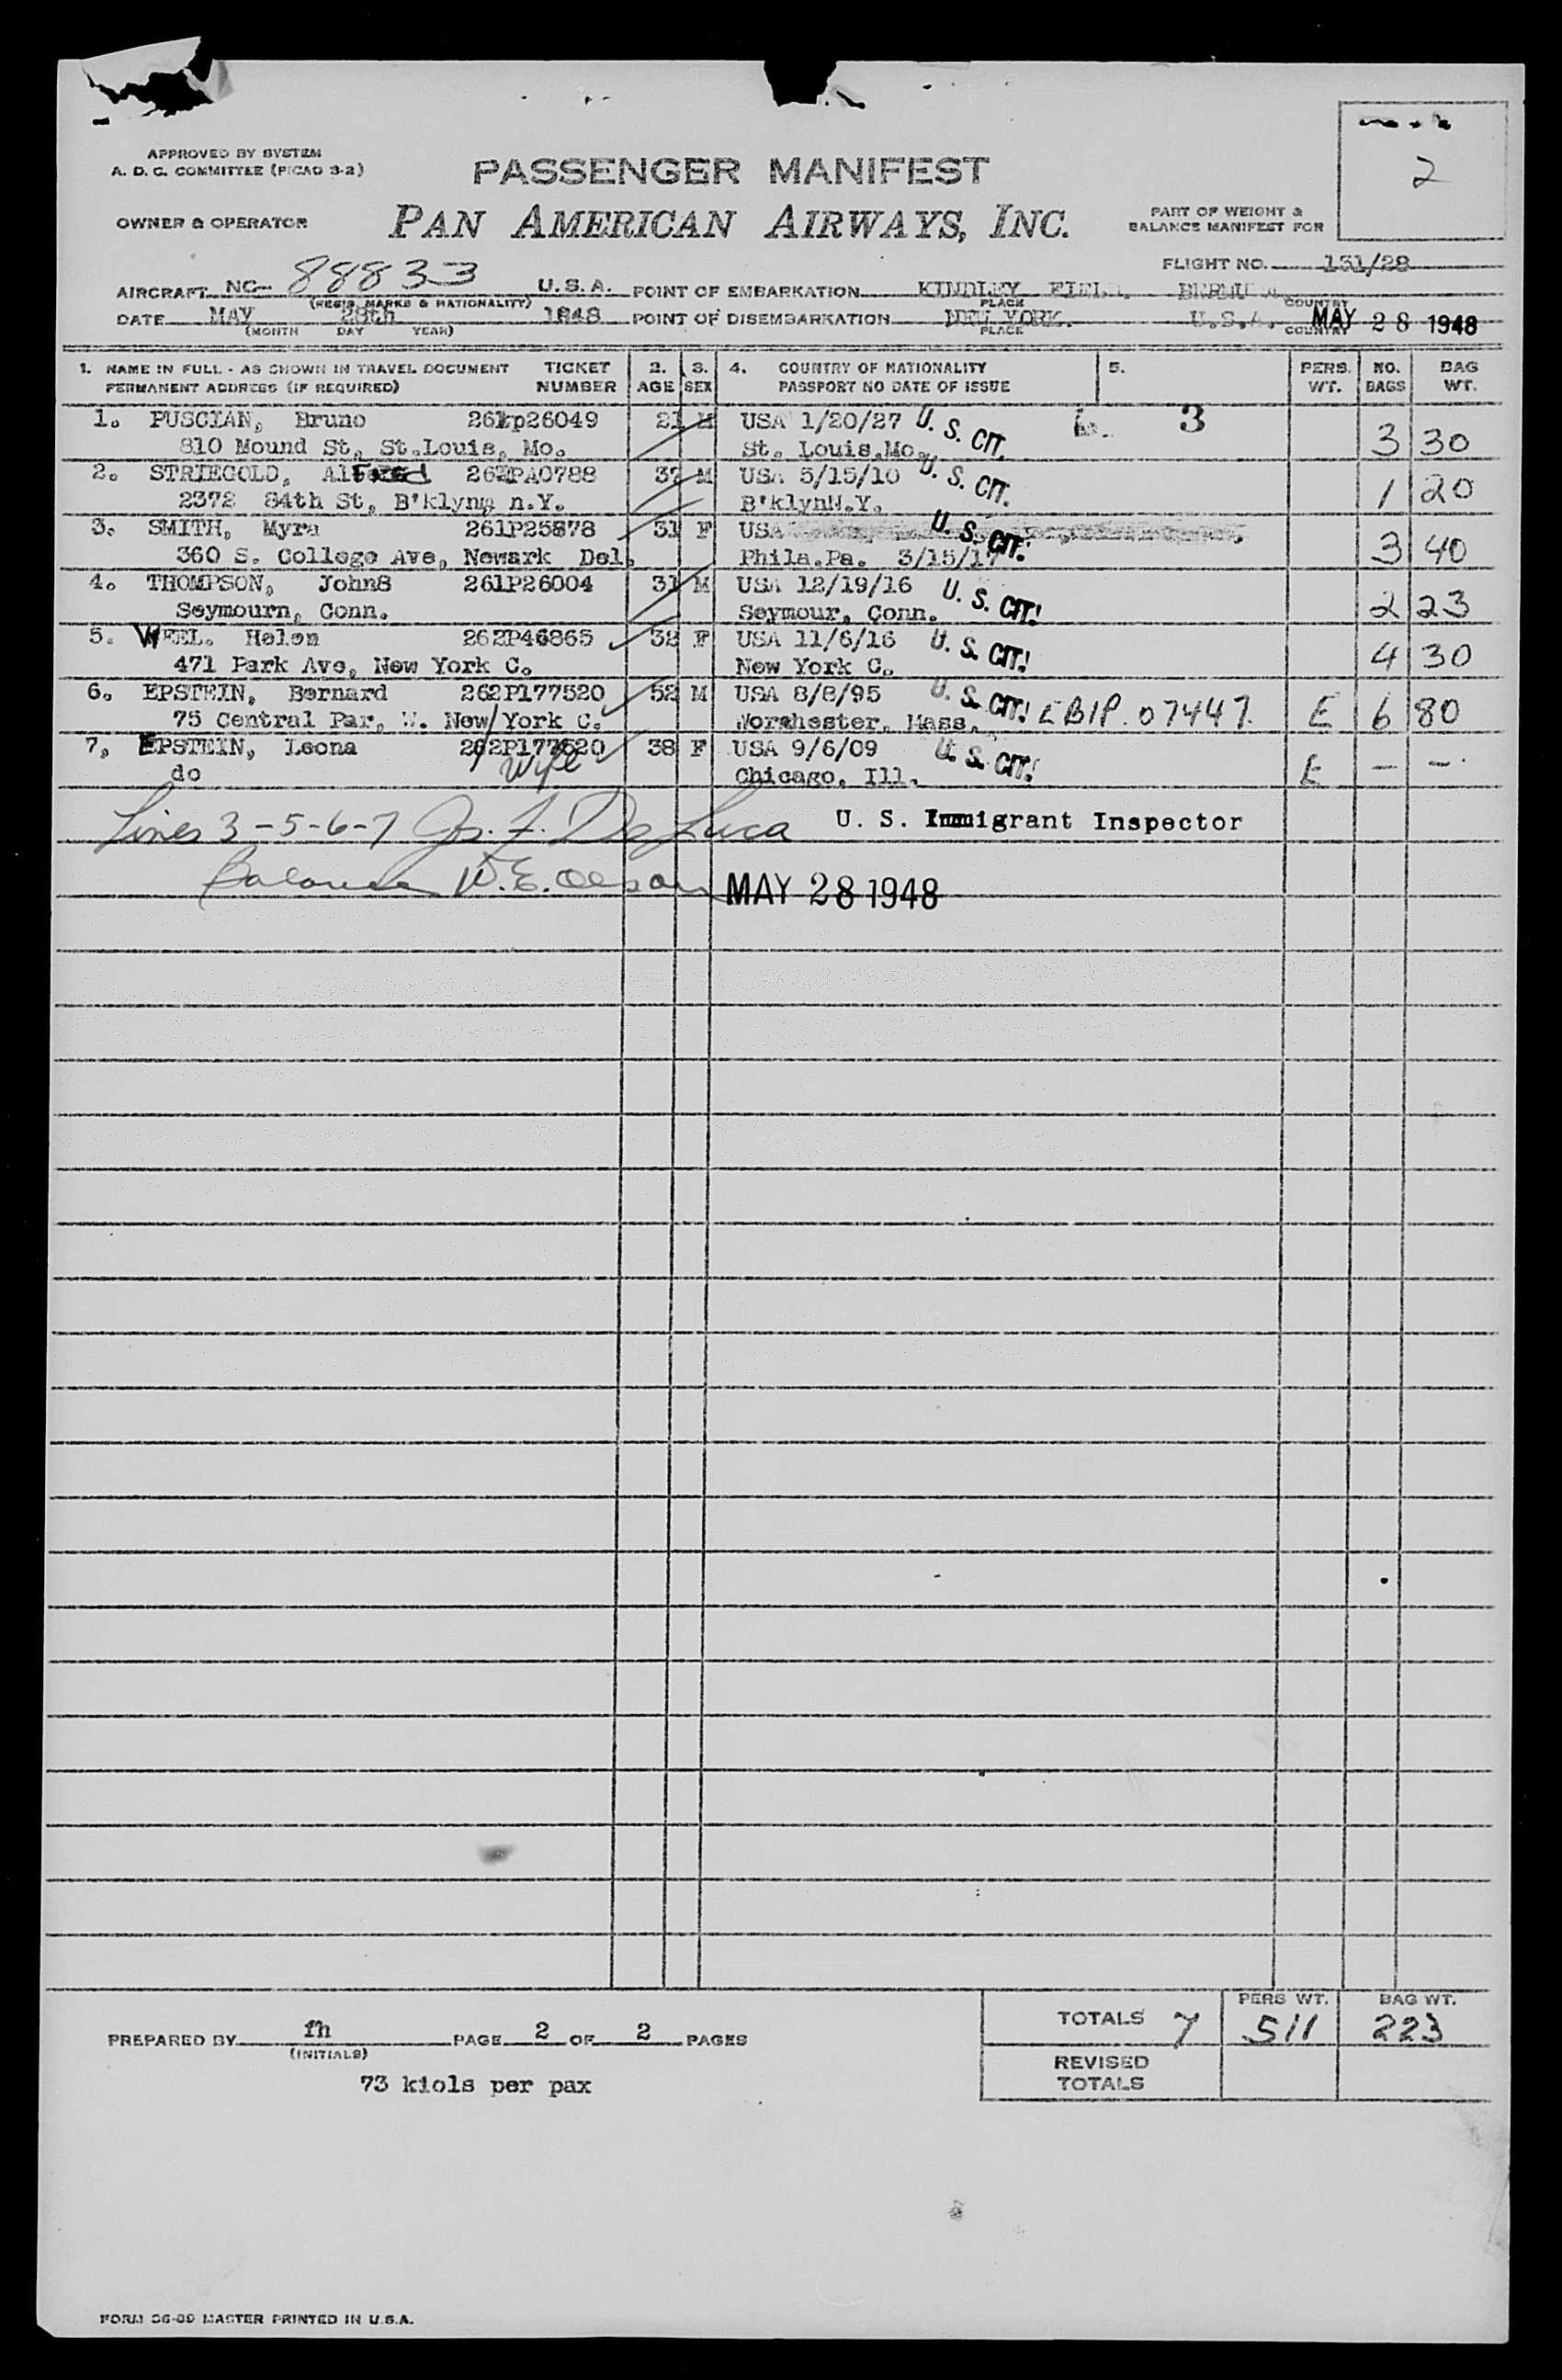 APPROVED BY SYSTEM
A. D. C. COMMITTEE (PICAO 3-2)
PASSENGER MANIFEST
2
OWNER & OPERATOR
PAN AMERICAN AIRWAYS, INC.
PART OF WEIGHT &
BALANCE MANIFEST FOR
FLIGHT NO. 131/28
AIRCRAFT NC- 88833 U.S.A. POINT OF EMBARKATION KINDLEY FIELD. BERMUDA
(REGIS. MARKS & NATIONALITY) PLACE COUNTRY
DATE MAY 28th 1948 POINT OF DISEMBARKATION NEW YORK. U.S.A. MAY 28 1948
(MONTH DAY YEAR) PLACE COUNTRY
1. NAME IN FULL - AS SHOWN IN TRAVEL DOCUMENT TICKET 2. 3. 4. COUNTRY OF NATIONALITY 5. PERS. NO. BAG
PERMANENT ADDRESS (IF REQUIRED) NUMBER AGE SEX PASSPORT NO DATE OF ISSUE WT. BAGS WT.
1. PUSCIAN, Bruno 261p26049 21 M USA 1/20/27 U. S. CIT. 3
810 Mound St, St.Louis, Mo. St. Louis,Mo. 3 30
2. STRIEGOLD, Alfred 262PA0788 37 M USA 5/15/10 U. S. CIT.
2372 84th St, B'klyn, n.Y. B'klynN.Y. 1 20
3. SMITH, Myra 261P25878 31 F USA U. S. CIT.
360 S. College Ave, Newark Del. Phila.Pa. 3/15/17 3 40
4. THOMPSON, JohnS 261P26004 31 M USA 12/19/16 U. S. CIT!
Seymourn, Conn. Seymour, Conn. 2 23
5. WEEL. Helen 262P46865 32 F USA 11/6/16 U. S. CIT!
471 Park Ave, New York C. New York C. 4 30
6. EPSTEIN, Bernard 262P177520 52 M USA 8/8/95 U. S. CIT! EBIP. 07447.
75 Central Par, W. New York C. Worchester, Mass. E 6 80
7, EPSTEIN, Leona 262P177520 38 F USA 9/6/09 U. S. CIT!
do Wife Chicago, Ill. E — —
Lines 3-5-6-7 Jos. F. De Luca U. S. Immigrant Inspector
Balance W. E. Olson MAY 28 1948
TOTALS 7 PERS WT. 511 BAG WT. 223
PREPARED BY fh PAGE 2 OF 2 PAGES
(INITIALS)
REVISED
TOTALS
73 kiols per pax
FORM 36-89 MASTER PRINTED IN U.S.A.